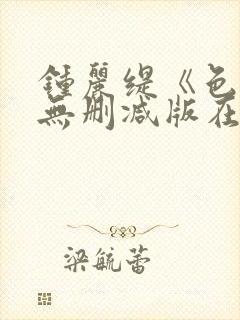 鍾麗缇《色
無删减版在
梁毓蕾